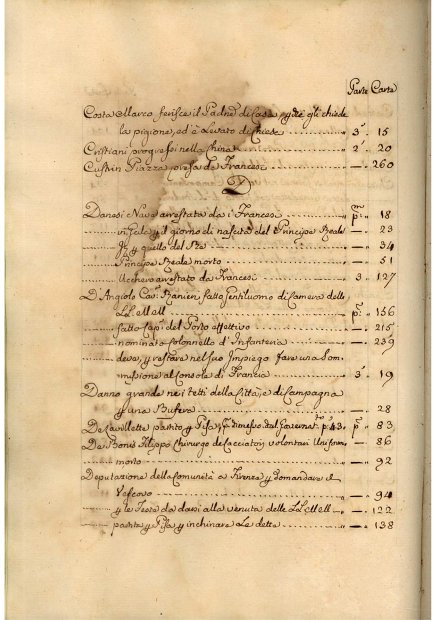 Parte Carte
Costa Marco ferisce il Padne di Casa pche gli chiede
la pigione, ed è levato di Chiesa 3ª 15
Cristiani progressi nella China 2ª 20
Custrin Piazza presa da Francesi — 260
D
Danesi Nave arrestata da i Francesi pma 18
in Gala p il giorno di nascita del Principe Reale — 23
p quello del Re — 34
Principe Reale morto — 51
arrestato da Francesi 3 127
D'Angiolo Cav: Ranieri fatto Gentiluomo di Camera delle
LL. MM pª 156
fatto Capº del Porto effettivo — 215
nominato Colonnello d'Infanteria — 239
deve, p restare nel suo Impiego fare una Som
missione al Console di Francia 3ª 19
Danno grande ne i tetti della Città, e di Campagna
p una Bufera — 28
De partito p Pisa, pº 43, pª 83
De Bonis Filippo Chirurgo de Cacciatori volontari — 86
morto — 92
Deputazione della Comunità a Firenze p domandare il
Vescovo — 94
p le Feste da darsi alla venuta delle LL. MM — 122
parte p Pisa p inchinare Le dette — 138